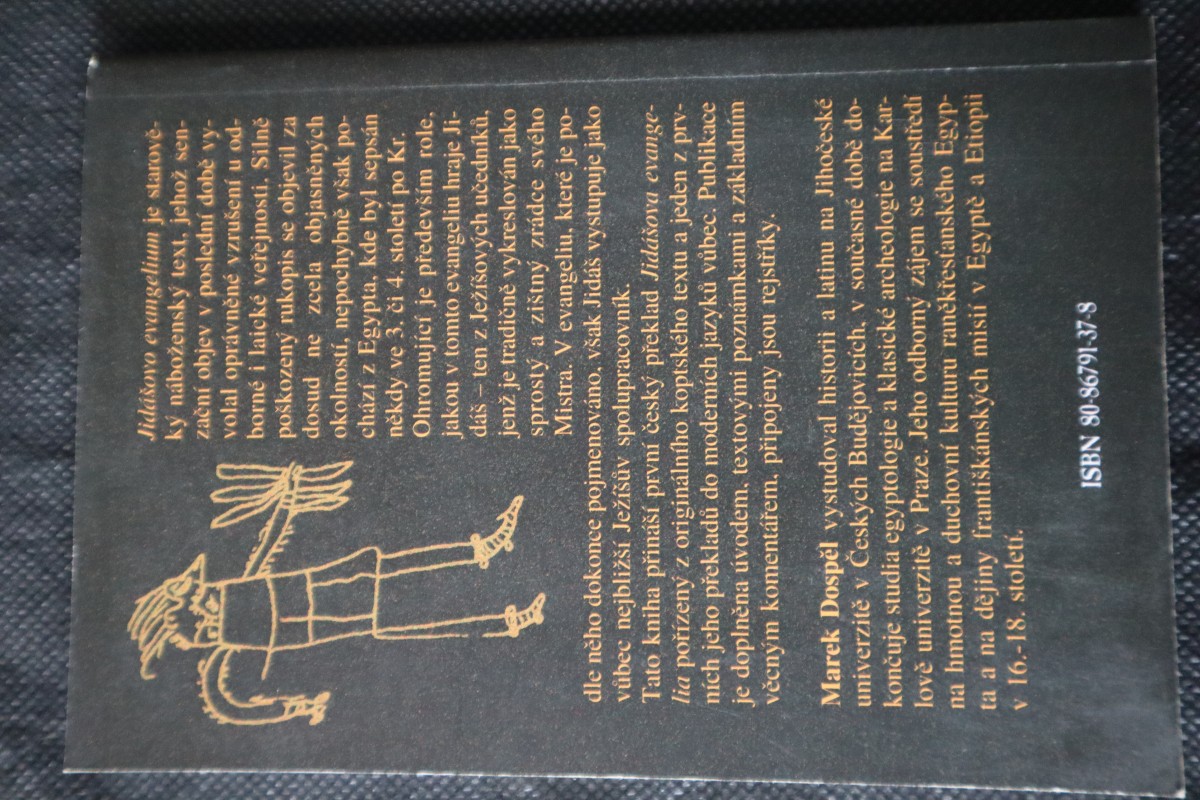 Jidášovo evangelium je starově-
ký náboženský text, jehož sen-
zační objev v poslední době vy-
volal oprávněné vzrušení u od-
borné i laické veřejnosti. Silně
poškozený rukopis se objevil za
dosud ne zcela objasněných
okolností, nepochybně však po-
chází z Egypta, kde byl sepsán
někdy ve 3. či 4. století po Kr.
Ohromující je především role,
jakou v tomto evangeliu hraje Ji-
dáš – ten z Ježíšových učedníků,
jenž je tradičně vykreslován jako
sprostý a zištný zrádce svého
Mistra. V evangeliu, které je po-
dle něho dokonce pojmenováno, však Jidáš vystupuje jako
vůbec nejbližší Ježíšův spolupracovník.
Tato kniha přináší první český překlad Jidášova evange-
lia pořízený z originálního koptského textu a jeden z prv-
ních jeho překladů do moderních jazyků vůbec. Publikace
je doplněna úvodem, textovými poznámkami a základním
věcným komentářem, připojeny jsou rejstříky.
Marek Dospěl vystudoval historii a latinu na Jihočeské
univerzitě v Českých Budějovicích, v současné době do-
končuje studia egyptologie a klasické archeologie na Kar-
lově univerzitě v Praze. Jeho odborný zájem se soustředí
na hmotnou a duchovní kulturu raněkřesťanského Egyp-
ta a na dějiny františkánských misií v Egyptě a Etiopii
v 16.-18. století.
ISBN 80-86791-37-8